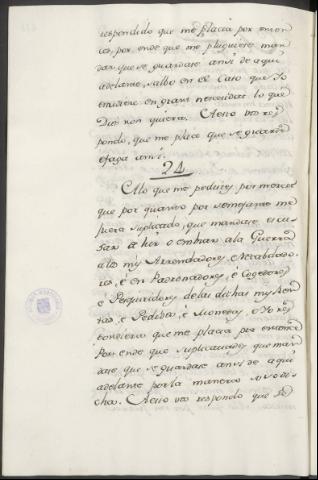 respondido que me placia por enton-
ces, por ende que me pluguiese man-
dar que se guardase ansi de aqui
adelante, salbo en el Caso que Yo
estuviere en grant necesidad lo que
Dios non quiera. A esto vos res-
pondo, que me place que se guarde
e faga ansi.
24
A lo que me pedistes por merced
que por quanto por semejante me
fuera suplicado, que mandase escu-
sar a her o embiar a la Guerra
a los mis Arrendadores, e Recabdado-
res, e en Padronadores, e Cogedores
e Pesquiridores de las dichas mis Ren-
tas, e Pedidos, e Monedas, e Yo res-
pondiera que me placia por entonce
Por ende que suplicavades que man-
dase, que se guardase ansi de aqui
adelante por la manera suso di-
cha. A esto vos respondo que Yo